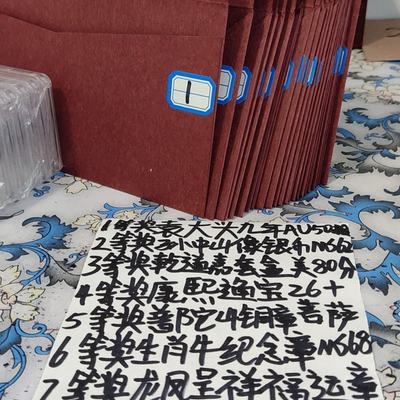 1
1等奖袁大头九年AU50
2等奖孙中山像银币MS62
3等奖乾通嘉套盒美80分
4等奖康熙通宝26+
5等奖普陀山铜章菩萨
6等奖生肖牛纪念章MS68
7等奖龙凤呈祥福运章